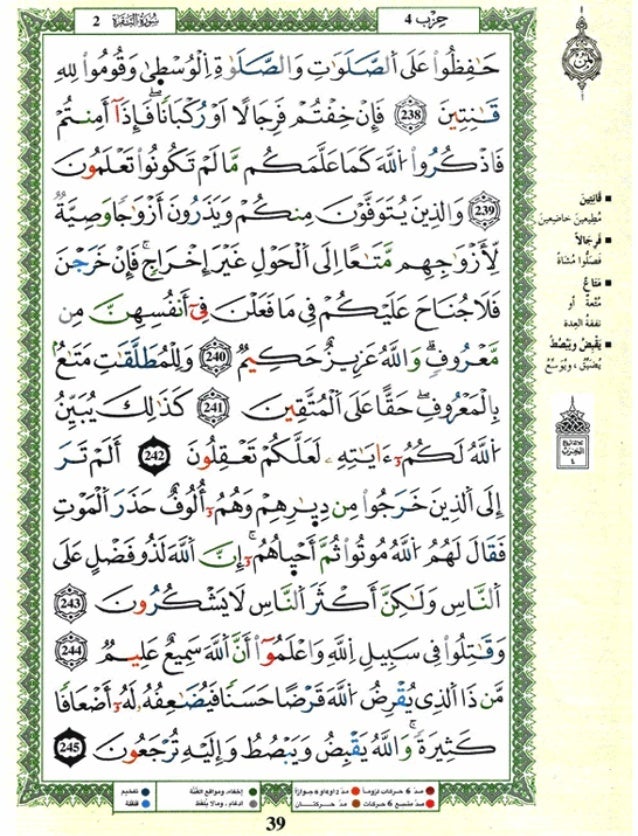 سُورَةُ البَقَرَة 2
حِزْب 4
حَٰفِظُوا۟ عَلَى اَ۬لصَّلَوَٰتِ وَالصَّلَوٰةِ اِ۬لْوُسْط۪يٰ وَقُومُوا۟ لِلهِ
قَٰنِتِينَ 238 فَإِنْ خِفْتُمْ فَرِجَالًا اَوْ رُكْبَانًا فَإِذَآ أَمِنتُمْ
فَاذْكُرُوا۟ اُ۬للَّهَ كَمَا عَلَّمَكُم مَّا لَمْ تَكُونُوا۟ تَعْلَمُونَ
239 وَالذِينَ يُتَوَفَّوْنَ مِنكُمْ وَيَذَرُونَ أَزْوَٰجًا وَصِيَّةٌ
لِّأَزْوَٰجِهِم مَّتَٰعًا اِلَى اَ۬لْحَوْلِ غَيْرَ إِخْرَاجٍ فَإِنْ خَرَجْنَ
فَلَا جُنَاحَ عَلَيْكُمْ فِي مَا فَعَلْنَ فِيٓ أَنفُسِهِنَّ مِن
مَّعْرُوفٍ وَاللَّهُ عَزِيزٌ حَكِيمٌ 240 وَلِلْمُطَلَّقَٰتِ مَتَٰعُۢ
بِالْمَعْرُوفِ حَقًّا عَلَى اَ۬لْمُتَّقِينَ 241 كَذَٰلِكَ يُبَيِّنُ
اُ۬للَّهُ لَكُمُۥٓ ءَايَٰتِهِۦ لَعَلَّكُمْ تَعْقِلُونَ 242 أَلَمْ تَرَ
إِلَى اَ۬لذِينَ خَرَجُوا۟ مِن دِيٰ۪رِهِمْ وَهُمُۥٓ أُلُوفٌ حَذَرَ اَ۬لْمَوْتِ
فَقَالَ لَهُمُ اُ۬للَّهُ مُوتُوا۟ ثُمَّ أَحْي۪اهُمُۥٓ إِنَّ اَ۬للَّهَ لَذُو فَضْلٍ عَلَى
اَ۬لنَّاسِ وَلَٰكِنَّ أَكْثَرَ اَ۬لنَّاسِ لَا يَشْكُرُونَ 243
وَقَٰتِلُوا۟ فِي سَبِيلِ اِ۬للَّهِ وَاعْلَمُوٓا۟ أَنَّ اَ۬للَّهَ سَمِيعٌ عَلِيمٌ 244
مَّن ذَا اَ۬لذِي يُقْرِضُ اُ۬للَّهَ قَرْضًا حَسَنًا فَيُضَٰعِفُهُۥ لَهُۥٓ أَضْعَافًا
كَثِيرَةً وَاللَّهُ يَقْبِضُ وَيَبْصُطُ وَإِلَيْهِ تُرْجَعُونَ 245
■ قَانِتِينَ
مُطِيعِينَ خَاضِعِينَ
■ فَرِجَالاً
فَصَلُّوا مُشَاةً
■ مَتَاعٌ
مُتْعَةٌ أو
نفقة العِدة
■ يَقْبِضُ وَيَبْصُطُ
يُضَيِّقُ ، وَيُوَسِّعُ
ثلاثة أرباع
الحزب
٤
مدّ 6 حركات لزوماً
مدّ 2 أو 4 أو 6 جوازاً
إخفاء، ومواقع الغُنَّة
تفخيم
مدّ مشبع 6 حركات
مدّ حركتان
إدغام، وما لا يُلفظ
قلقلة
39